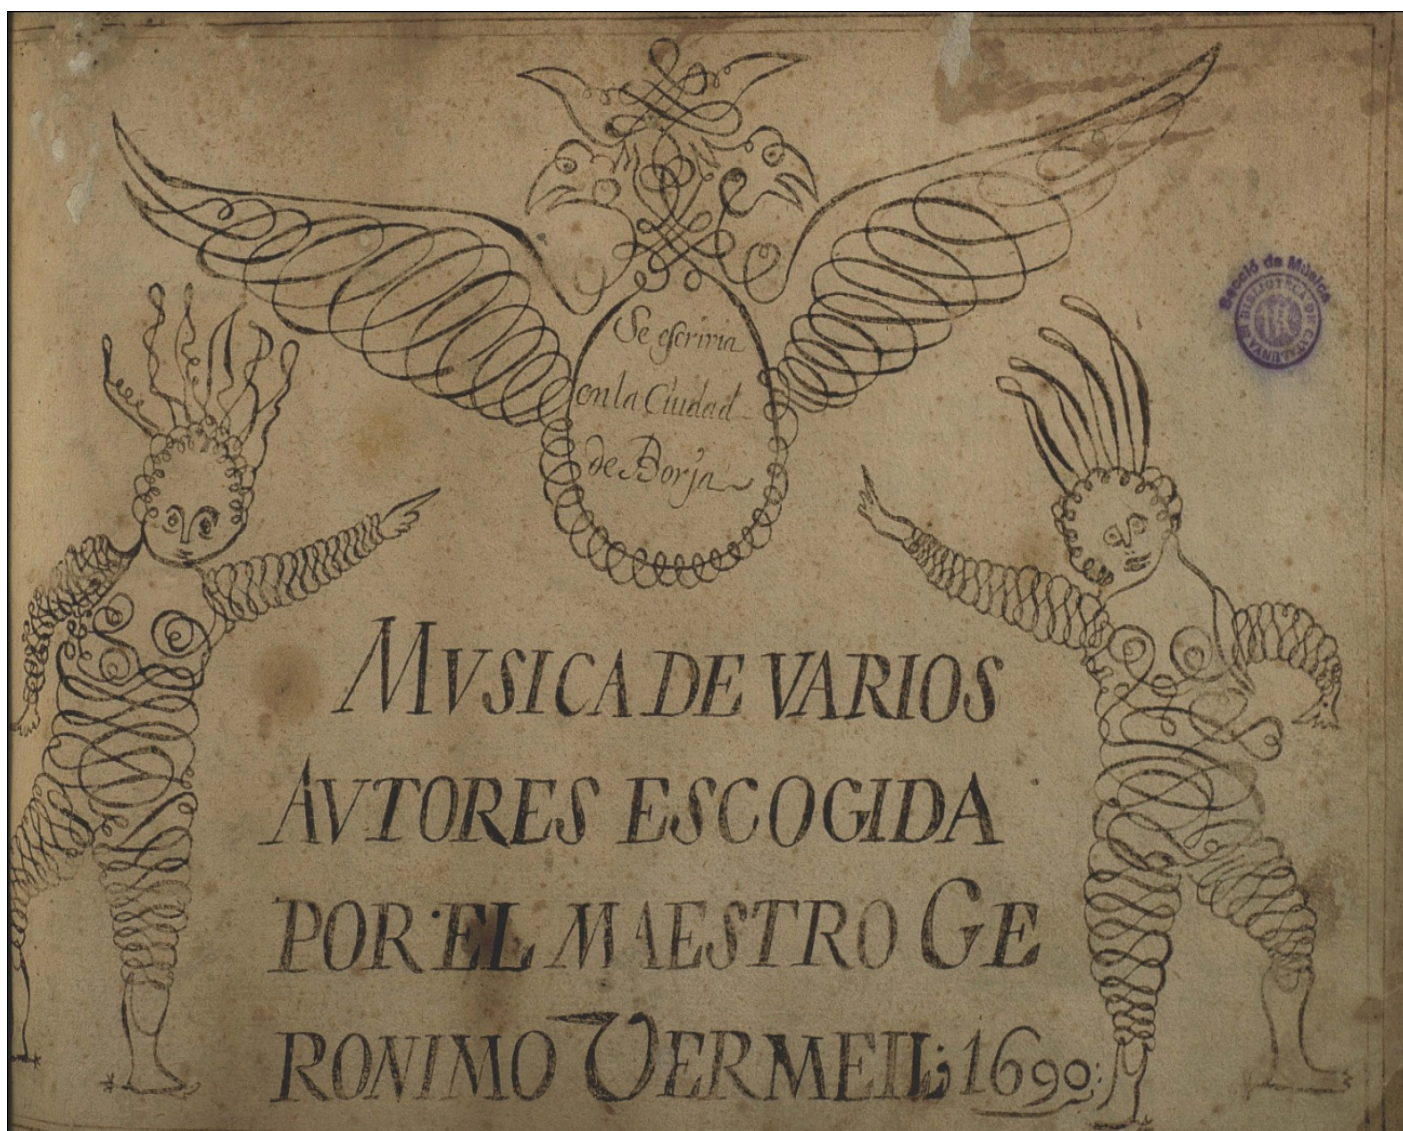 Se escrivia
en la Ciudad
de Borja
Secció de Música
BIBLIOTECA DE CATALUNYA
MVSICA DE VARIOS
AVTORES ESCOGIDA
POR EL MAESTRO GE
RONIMO VERMELL; 1690;